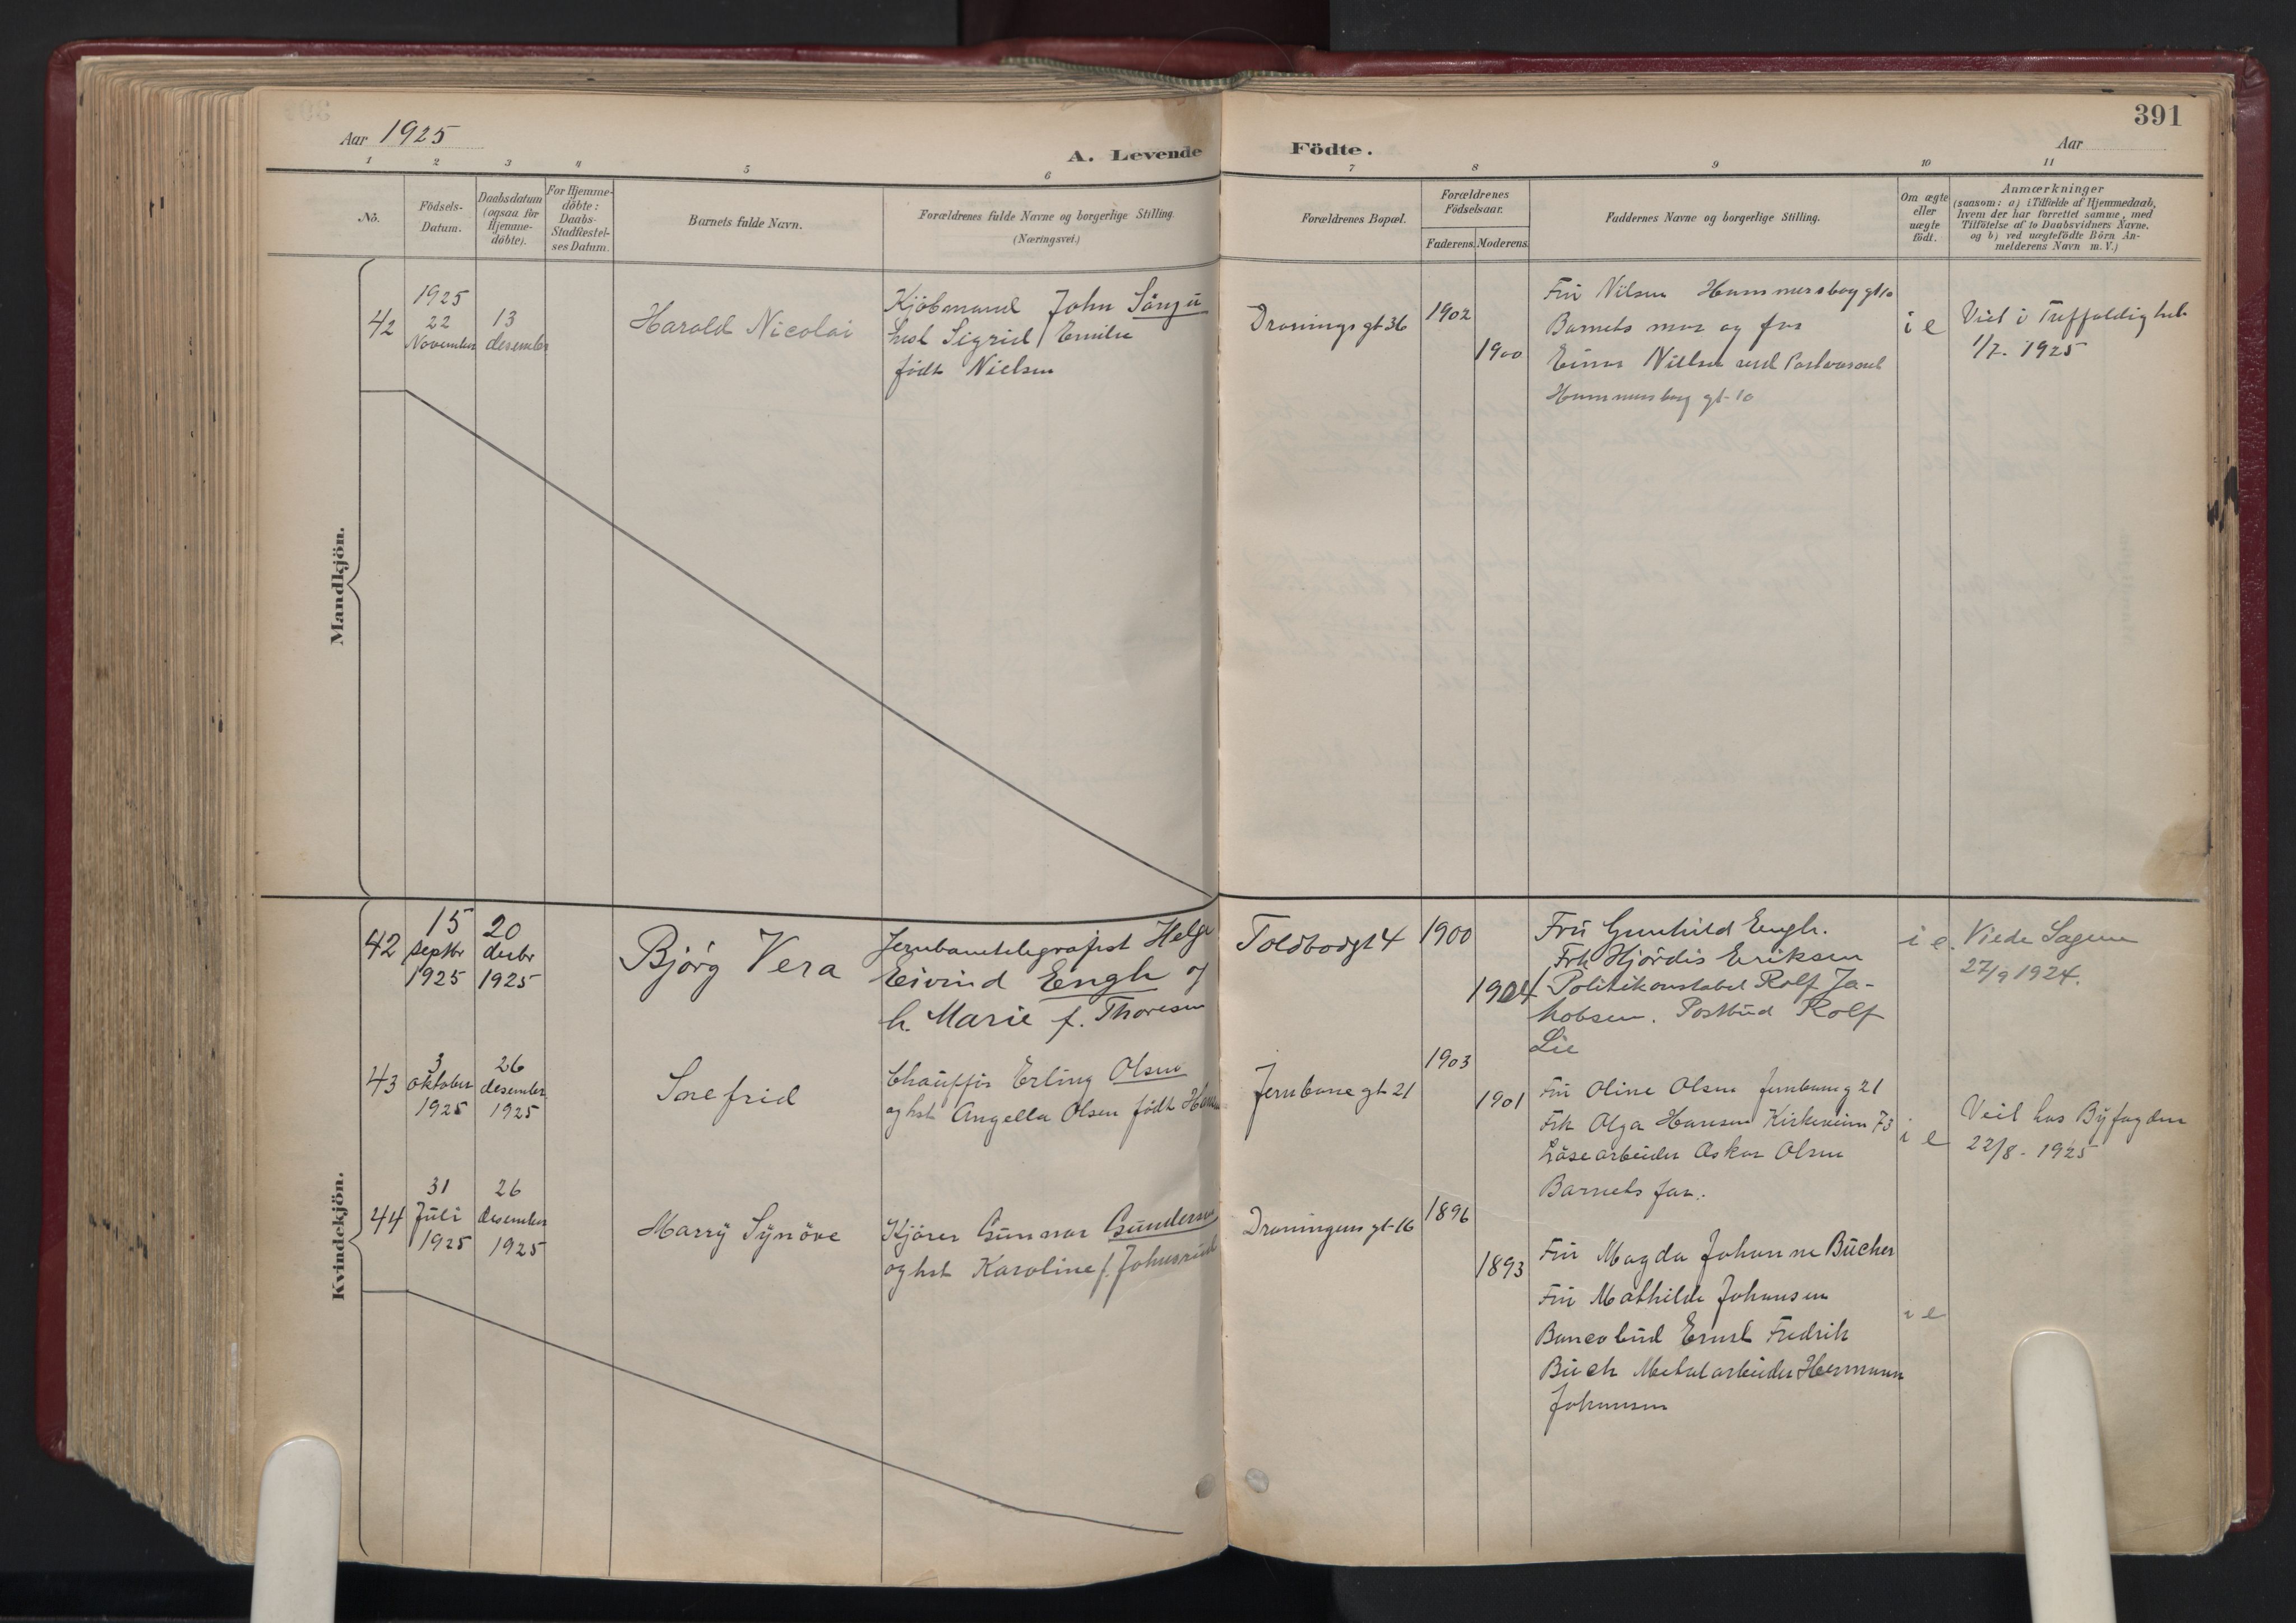 391
Aar 1925
A. Levende Födte.
Aar
1 2 3 4 5 6 7 8 9 10 11
No.
Födsels-
Datum.
Daabsdatum
(ogsaa for
Hjemme-
döbte).
For Hjemme-
döbte:
Daabs-
Stadfæstel-
ses Datum.
Barnets fulde Navn.
Forældrenes fulde Navne og borgerlige Stilling
(Næringsvei.)
Forældrenes Bopæl.
Forældrenes
Födselsaar.
Faderens. Moderens.
Faddernes Navne og borgerlige Stilling.
Om ægte
eller
uægte
födt.
Anmærkninger
(saasom: a) i Tilfælde af Hjemmedaab,
hvem der har forrettet samme, med
Tilföielse af to Daabsvidners Navne.
og b) ved uægtefödte Börn An-
melderens Navn m. V.)
Mandkjön.
42
1925
22
November
13
desember
Harald Nicolai
Kjöbmand John
Sigrid Emilie
födt Nielsen
Dronnings gt 36
1902
1900
Fru Nilsen Hammersborg gt 10
Barnets mor og far
Einar Nielsen
Hammersborg gt 10
i e
Viet i Treffoldighet
1/7. 1925
Kvindekjön.
42
15
septbr
1925
20
desbr
1925
Bjórg Vera
Jernbanetelegrafist Helge
Eivind Engh og
h. Marie f. Thoresen
Toldbodgt 4
1900
1904
Frú Gunhild Engh.
Frk Hjórdis Eriksen
Politikonstabel Rolf Ja-
kobsen. Postbud Rolf
Lie
i e.
Viede Sagene
27/9 1924.
43
3
oktober
1925
26
desember
1925
Snefrid
Chaufför Erling Olsen
og hst Angella Olsen födt Hansen
Jernbane gt 21
1903
1901
Fru Oline Olsen Jernbaneg 21
Frk Olga Hansen Kirkeveien 73
Låsearbeider Oskar Olsen
Barnets far.
i e
Veil hos Byfogden
22/8 - 1925
44
31
Juli
1925
26
desember
1925
Marry Synöve
Kjörer Gunnar Gundersen
og hst Karoline f. Johnsrud
Dronningens gt 16
1896
1893
Fru Magda Johanne Bücher
Fru Mathilde Johansen
Bancobud Ernst Fredrik
Buch Metalarbeider Hermann
Johansen
i e